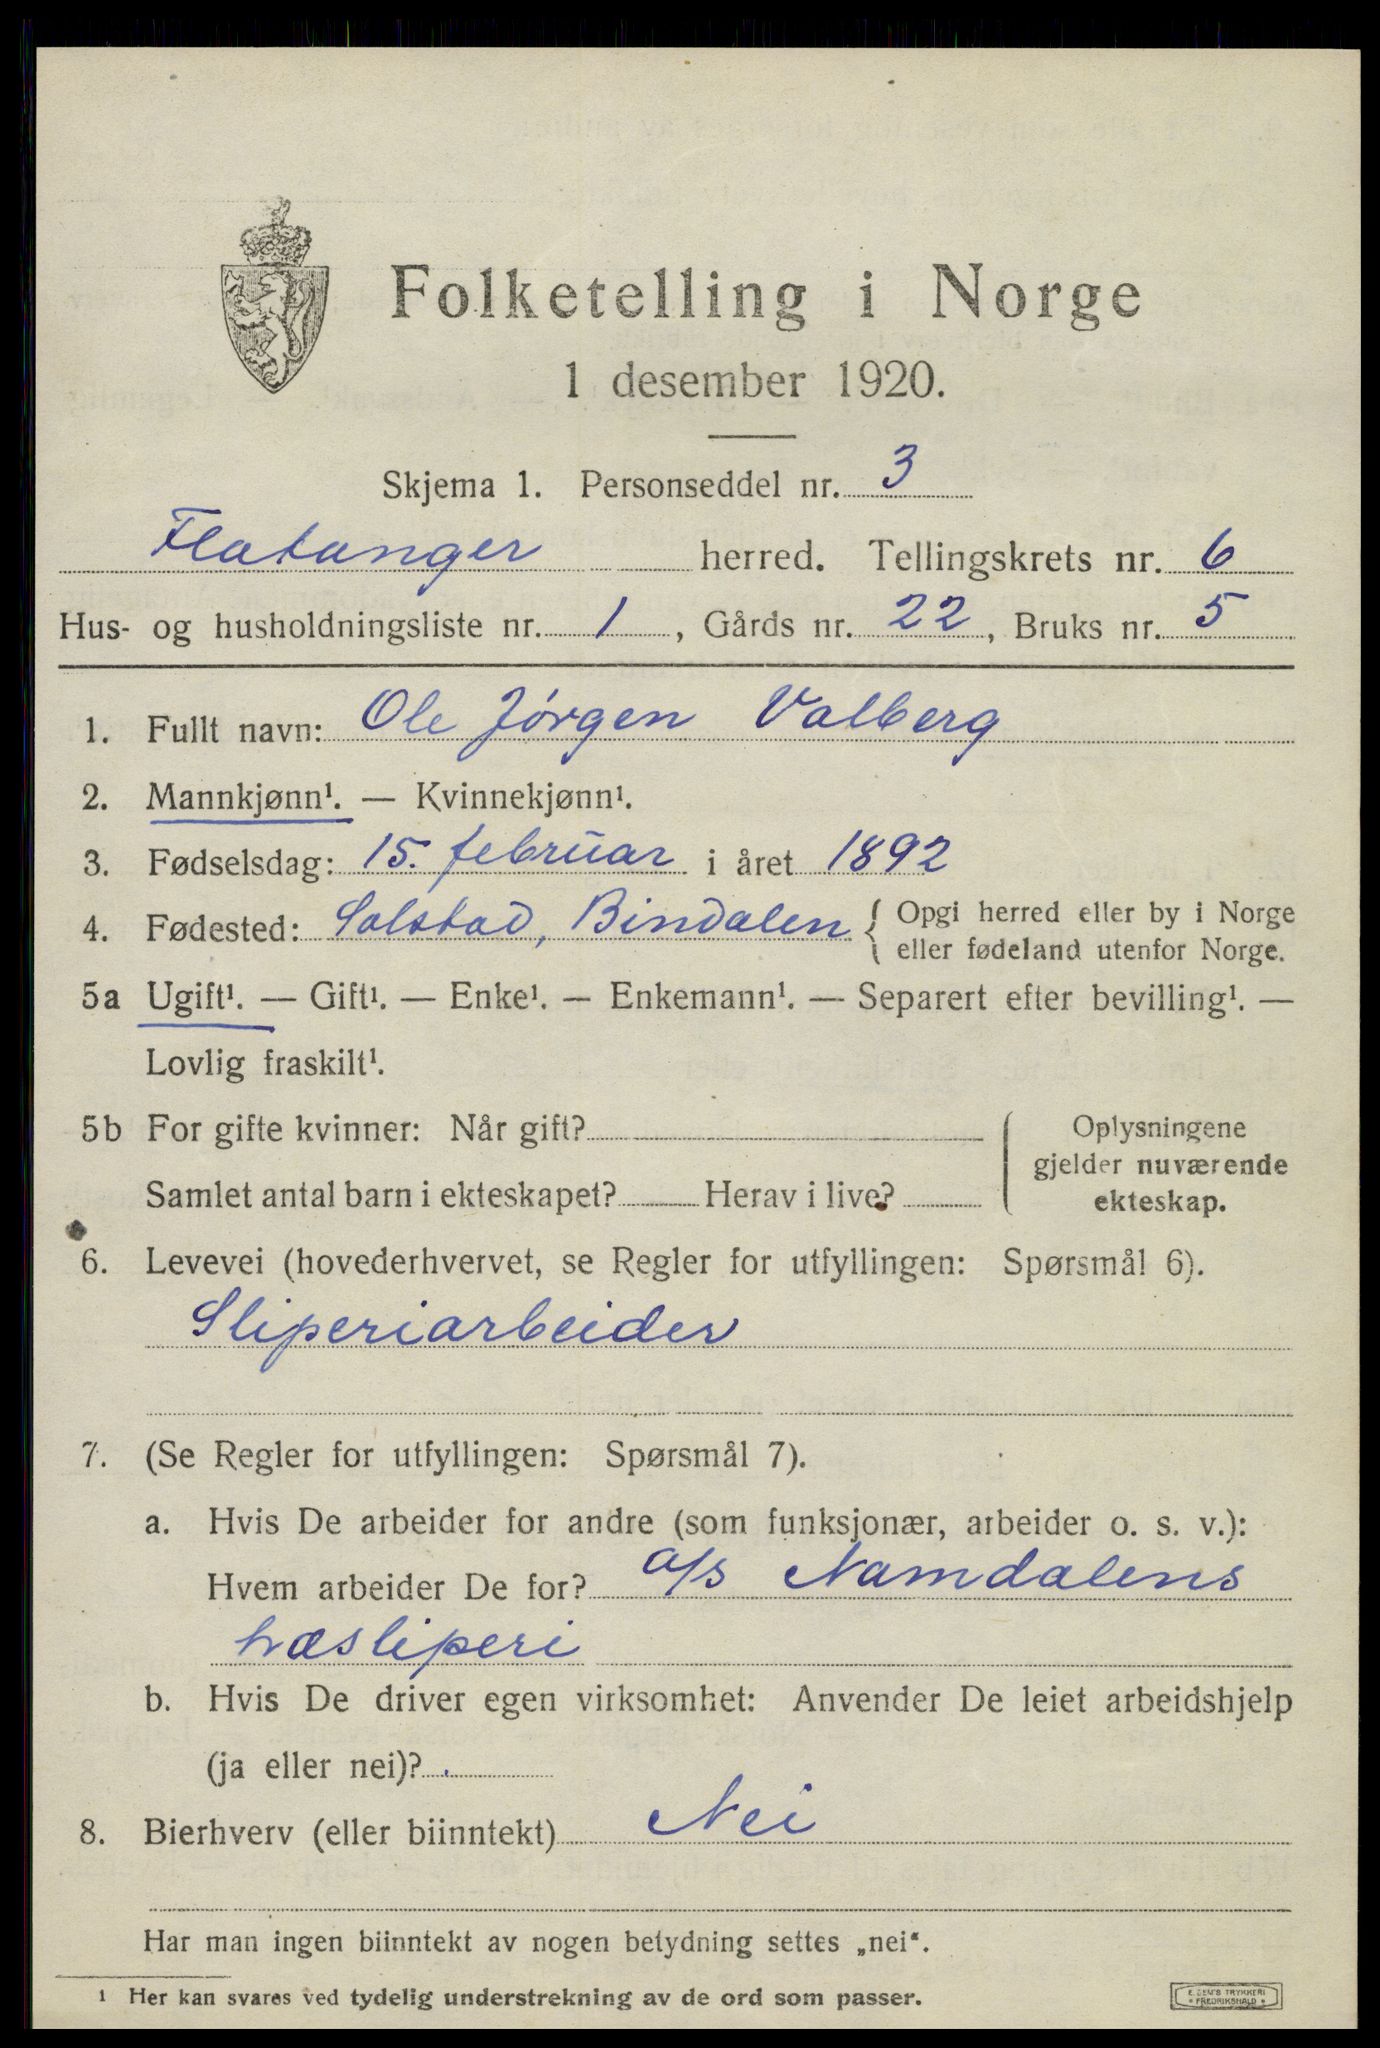 Folketelling i Norge
1 desember 1920.
Skjema 1. Personseddel nr. 3
Flatanger herred. Tellingskrets nr. 6
Hus- og husholdningsliste nr. 1, Gårds nr. 22, Bruks nr. 5
1. Fullt navn: Ole Jörgen Valberg
2. Mannkjønn¹. — Kvinnekjønn¹.
3. Fødselsdag: 15. februar i året 1892
4. Fødested: Solstad, Bindalen { Opgi herred eller by i Norge
eller fødeland utenfor Norge.
5a Ugift¹. — Gift¹. — Enke¹. — Enkemann¹. — Separert efter bevilling¹. —
Lovlig fraskilt¹.
5b For gifte kvinner: Når gift?
Samlet antal barn i ekteskapet? Herav i live?
Oplysningene
gjelder nuværende
ekteskap.
6. Levevei (hovederhvervet, se Regler for utfyllingen: Spørsmål 6).
Sliperiarbeider
7. (Se Regler for utfyllingen: Spørsmål 7).
a. Hvis De arbeider for andre (som funksjonær, arbeider o. s. v.):
Hvem arbeider De for? a/s Namdalens
træsliperi
b. Hvis De driver egen virksomhet: Anvender De leiet arbeidshjelp
(ja eller nei)?
8. Bierhverv (eller biinntekt) Nei
Har man ingen biinntekt av nogen betydning settes „nei“.
¹ Her kan svares ved tydelig understrekning av de ord som passer.
E. SEM'S TRYKKERI
• FREDRIKSHALD •